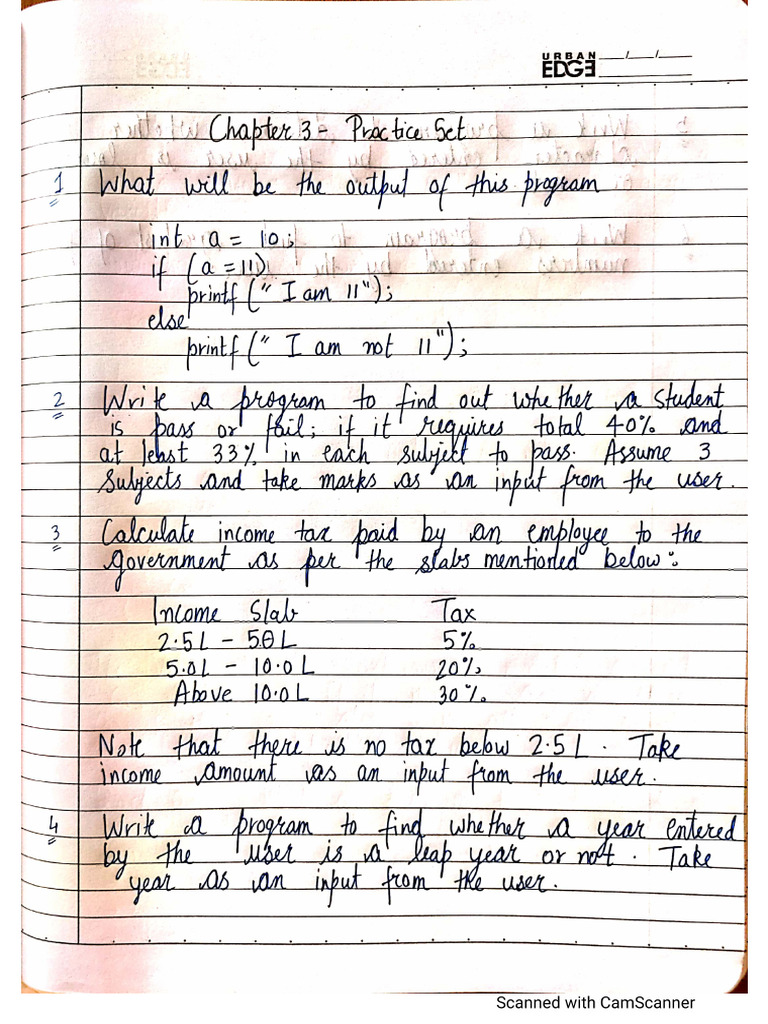 URBAN
EDGE
Chapter 3 - Practice Set
1 What will be the output of this program
int a = 10;
if (a = 11)
printf (" I am 11");
else
printf (" I am not 11");
2 Write a program to find out whether a student
is pass or fail; if it requires total 40% and
at least 33% in each subject to pass. Assume 3
subjects and take marks as an input from the user.
3 Calculate income tax paid by an employee to the
government as per the slabs mentioned below:
Income Slab Tax
2.5L - 5.0L 5%
5.0L - 10.0L 20%
Above 10.0L 30%
Note that there is no tax below 2.5L. Take
income amount as an input from the user.
4 Write a program to find whether a year entered
by the user is a leap year or not. Take
year as an input from the user.
Scanned with CamScanner